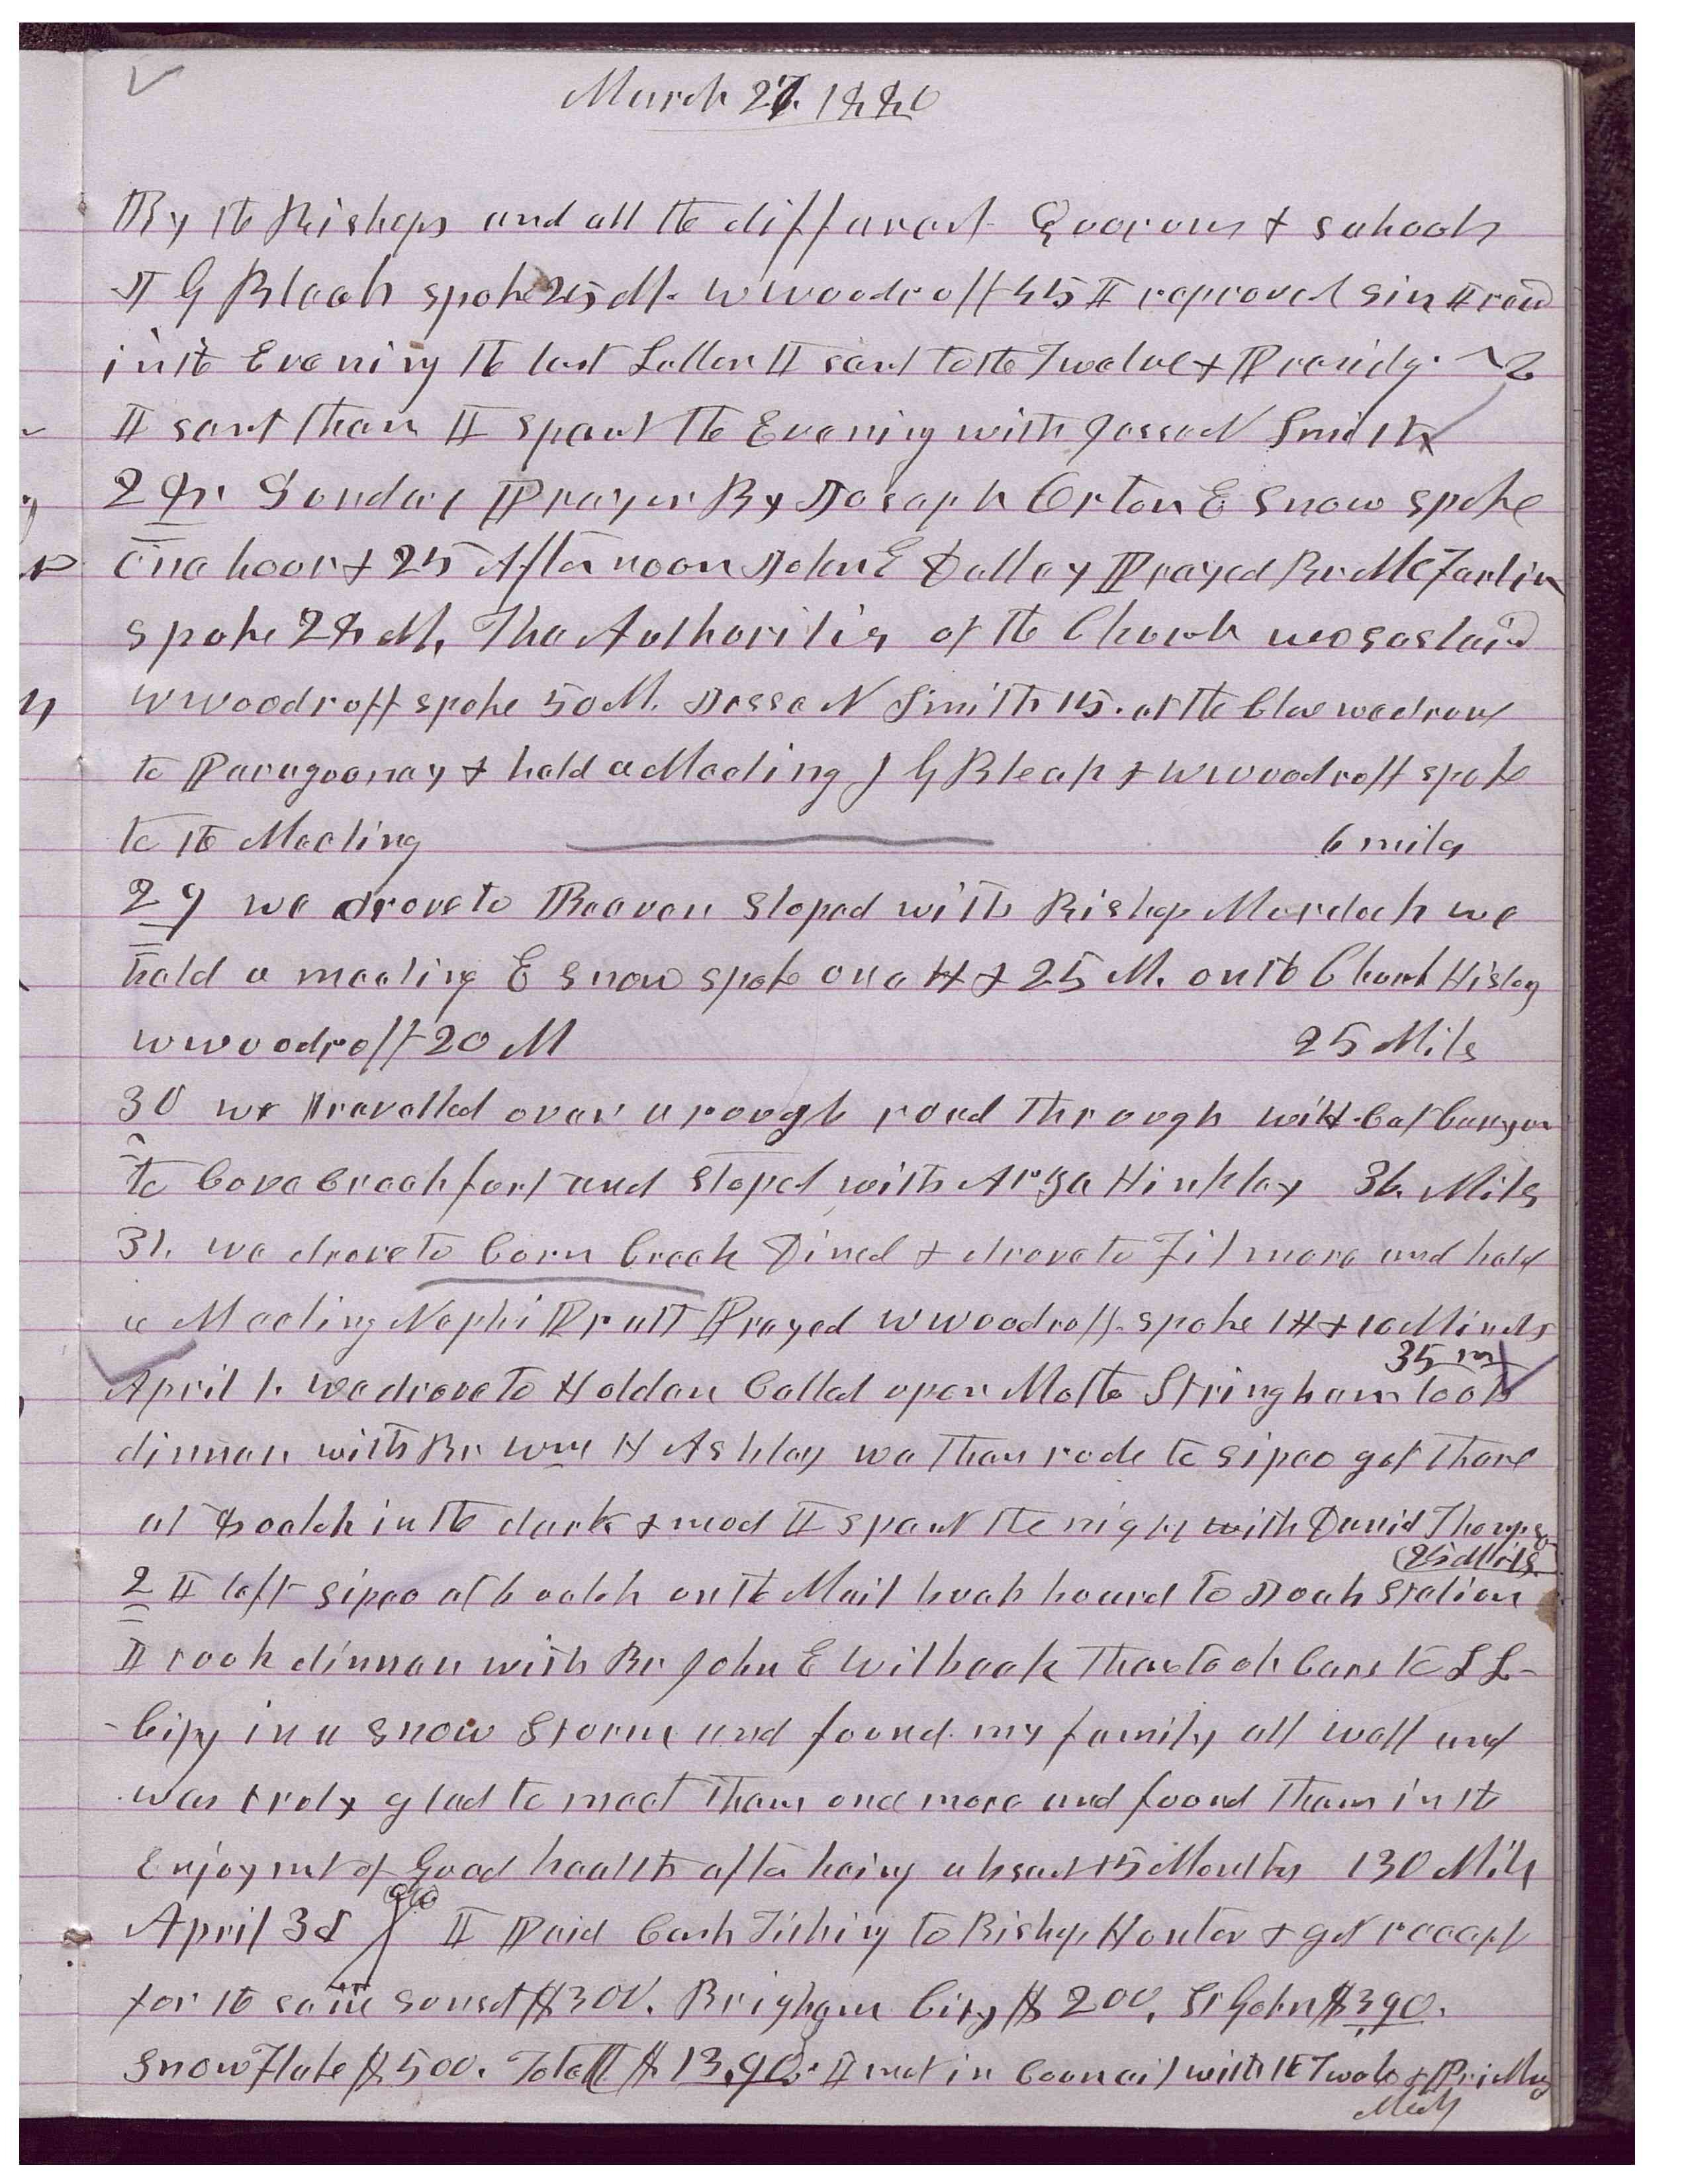 March 27. 1880
By the Bishops and all the different Quorums & schools
J G Bleak spoke 25 M. W Woodruff 45 I reproved sin I read
in the Evening the last Letter I sent to the Twelve & Presidg.
I sent them I spent the Evening with Jesse N Smith
28. Sunday Prayer By Joseph Orton E Snow spoke
one hour & 25 Afternoon John E Dalley Prayed Br McFarlin
spoke 28 M. The Authorities of the Church we sustaind
W Woodruff spoke 50 M. Jesse N Smith 15. at the Close we drove
to Paragoonay & held a Meeting J G Bleak & W Woodruff spoke
to the Meeting 6 miles
29 we drove to Beaver Stoped with Bishop Murdock we
held a meeting E Snow spoke one H & 25 M. on the Church History
W Woodruff 20 M 25 Miles
30 we travelled over a rough road through wild Cat Canyon
to Cove Creek fort and stoped with Arza Hinkley 36 Miles
31. we drove to Corn Creek Dined & drove to Filmore and held
a Meeting Nephi Pratt Prayed W Woodruff spoke 1 H & 10 Minuts
35 m
April 1. we drove to Holden Called upon Mother Stringham took
dinner with Br Wm H Ashley we then rode to Sipeo got there
at 8 oclok in the dark & mud I spent the night with David Thompson
25 Miles
2 I left Sipeo at 6 oclok on the Mail buck board to Juab Station
I took dinner with Br John E Wilback Then took Cars to S L
City in a snow storm and found my family all well and
was truly glad to meet them once more and found them in the
Enjoymt of Good health after being absent 15 Months 130 Miles
April 3d I Paid Cash Tithing to Bishop Hunter & got receept
for the same Sunset $300. Brigham City $200, St John $390.
Snow Flake $500. Total $13,90. I met in Council with the Twelve &